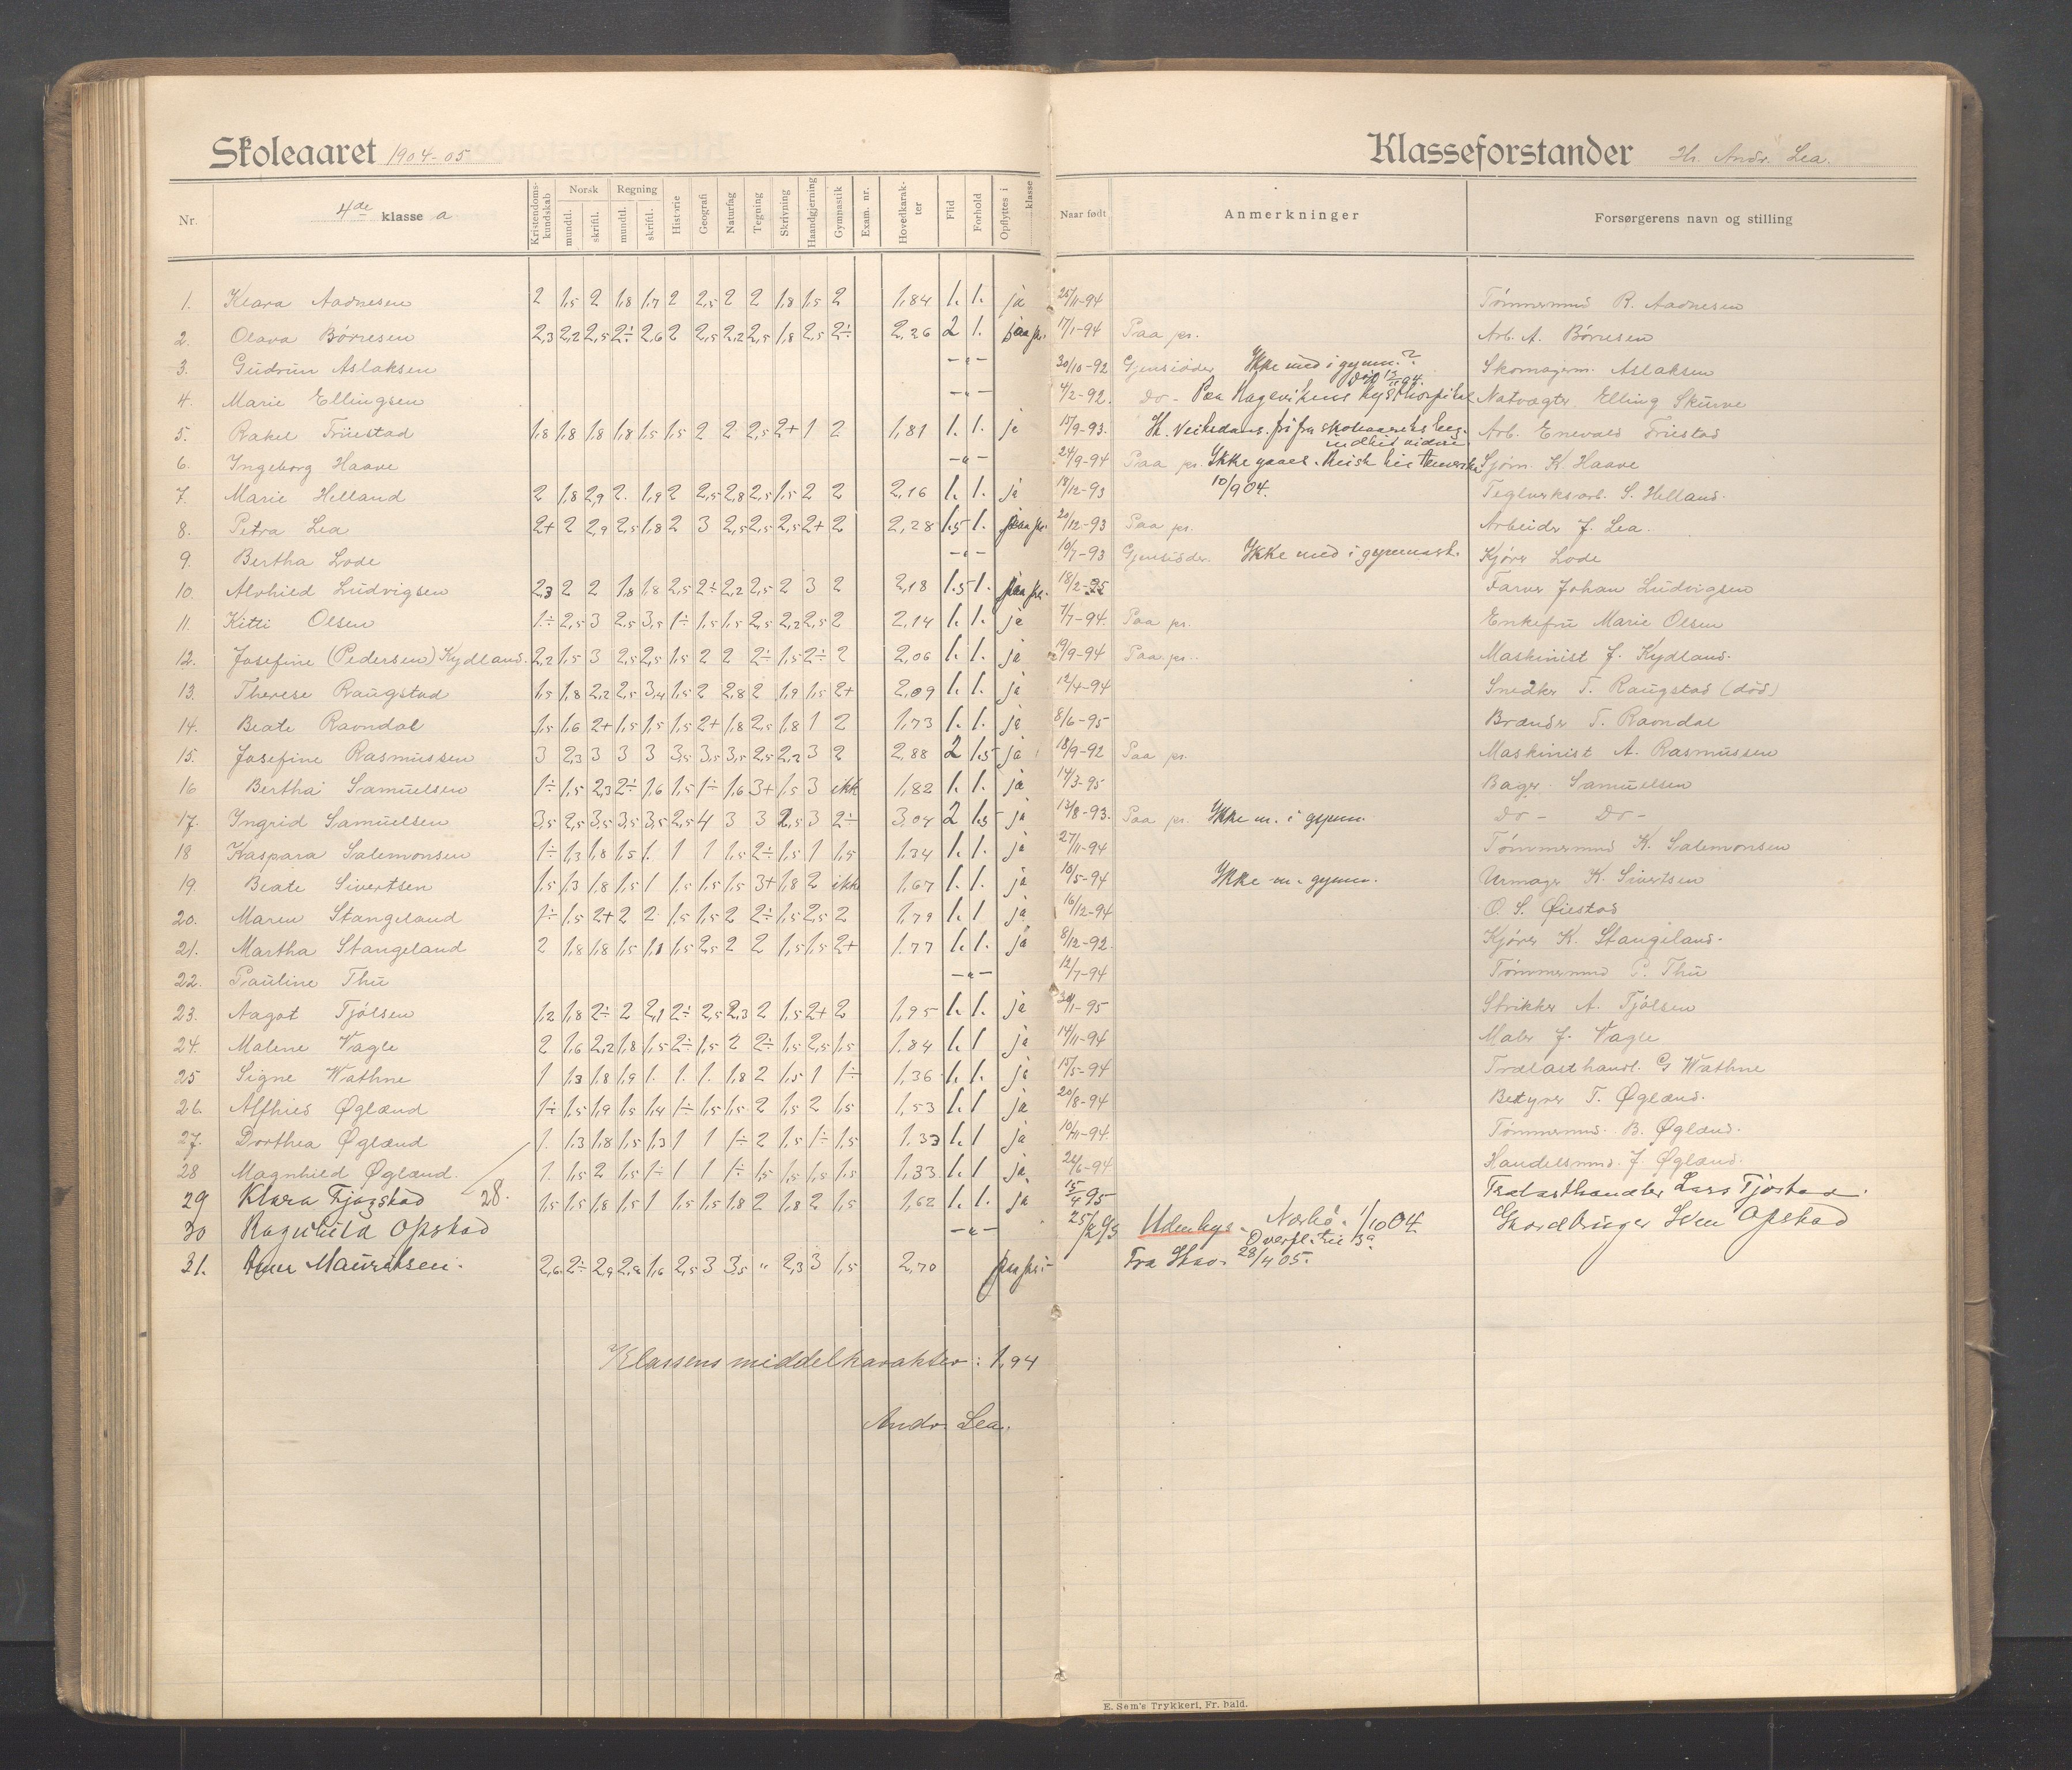 Skoleaaret 1904-05
Klasseforstander Hr. Andr. Lea.
Nr. 4de klasse a Kristendomskundskab Norsk mundtl. skriftl. Regning mundtl. skriftl. Historie Geografi Naturfag Tegning Skrivning Haandgjerning Gymnastik Exam. nr. Hovedkarakter Flid Forhold Opflyttes i klasse Naar født Anmerkninger Forsørgerens navn og stilling
1. Klara Aadnesen 2 1,5 2 1,8 1,7 2 2,5 2 2 1,8 1,5 2 1,84 1. 1. ja 25/11-94 Tømmermnd R. Aadnesen
2. Olava Børresen 2,3 2,2 2,5 2÷ 2,6 2 2,5 2,2 2,5 1,8 2,5 2÷ 2,26 2 1. paa pr. 17/1-94 Paa pr. Arb. A. Børresen
3. Gudrun Aslaksen -"- 30/10-92 Gjensidder Ikke med i gymn.? Skomagerm. Aslaksen
4. Marie Ellingsen -"- 4/2-92. do- Paa Hagevikens Kysthospital Natvægter Elling Skurve
5. Rakel Friestad 1,8 1,8 1,8 1,8 1,5 1,5 2 2 2,5 2+ 1 2 1,81 1. 1. ja 17/9-93. fri fra skoleaarets beg. indtil videre. Arb. Enevald Friestad
6. Ingeborg Haave -"- 24/9-94 Paa pr. Ikke gaaet. Reist til Amerika Sjøm. K. Haave
7. Marie Helland 2 1,8 2,9 2. 1,9 2 2,5 2,8 2,5 1,5 2 2 2,16 1. 1. ja 18/12-93 10/904. Teglverksarb. S. Helland.
8. Petra Lea 2+ 2 2,9 2,5 1,8 2 3 2,5 2,5 2,5 2+ 2 2,28 1.5 1. paa pr. 20/12-93 Paa pr. Arbeider J. Lea.
9. Bertha Lode -"- 10/7-93 Gjensidder. Ikke med i gymnast. Kjører Lode
10. Alvhild Ludvigsen 2,3 2 2 1,8 1,8 2,5 2÷ 2,2 2,5 2 3 2 2,18 1.5 1. paa pr. 18/2-95 Farver Johan Ludvigsen
11. Kitti Olsen 1÷ 2,5 3 2,5 3,5 1÷ 1,5 1,5 2,5 2,2 2,5 2 2,14 1. 1. ja 7/7-94. Paa pr. Enkefru Marie Olsen
12. Josefine (Pedersen) Kydland. 2,2 1,5 3 2,5 2,5 1,5 2 2 2÷ 1,5 2÷ 2 2,06 1. 1. ja 19/9-94 Paa pr. Maskinist J. Kydland.
13. Therese Raugstad 1,5 1,8 2,2 2,5 3,4 1,5 2 2,8 2 1,9 1,5 2+ 2,09 1. 1. ja 12/4-94 Snedker T. Raugstad (død)
14. Beate Ravndal 1,5 1,6 2+ 1,5 1,5 1,5 2+ 1,8 2,5 1,8 1 2 1,73 1. 1. ja 8/6-95 Brænder T. Ravndal
15. Josefine Rasmussen 3 2,3 3 3 3 3,5 3,5 3,5 2,5 2,2 3 2 2,88 2 1.5 ja 18/9-92 Paa pr. Maskinist A. Rasmussen
16 Bertha Samuelsen 1÷ 1,5 2,3 2÷ 1,6 1,5 1÷ 1,6 3+ 1,5 3 ikk 1,82 1. 1. ja 14/3-95 Bager Samuelsen
17. Ingrid Samuelsen 3,5 2,5 3,5 3,5 3,5 2,5 4 3 3 2,5 3 2÷ 3,04 2 1.5 ja 13/8-93. Paa pr. Ikke m. i gymn. Do- Do-
18 Kaspara Salemonsen 1÷ 1,3 1,8 1,5 1. 1 1 1,5 2÷ 1,5 1 1,5 1,34 1. 1. ja 27/11-94 Tømmermnd K. Salemonsen
19. Beate Sivertsen 1,5 1,3 1,8 1,5 1 1,5 1,5 1,5 3+ 1,8 2 ikk 1,67 1. 1. ja 10/5-94 Ikke m. gymn. Urmager K. Sivertsen
20. Maren Stangeland 1÷ 1,5 2+ 2 2 1,5 1,5 2 2÷ 1,5 2,5 2 1,79 1. 1 ja 16/12-94 O. S. Øiestad
21. Martha Stangeland 2 1,8 1,8 1,5 1,1 1,5 2,5 2 2 1,5 1,5 2+ 1.77 1. 1. ja 8/12-92. Kjører K. Stangeland.
22. Pauline Thu -"- 12/7-94 Tømmermnd P. Thu
23. Aagot Tjølsen 1,2 1,8 2÷ 2 2,1 2÷ 2,5 2,3 2 1,5 2+ 2 1,95 1. 1. ja 30/1-95 Strikker A. Tjølsen
24. Malene Vagle 2 1,6 2,2 1,8 1,5 2÷ 1,5 2 2÷ 1,5 2,5 1,5 1.84 1. 1 ja 14/11-94 Maler J. Vagle
25 Signe Wathne 1 1,3 1,8 1,9 1. 1. 1. 1,8 2 1,5 1 1÷ 1,36 1. 1. ja 15/5-94 Trælasthandl. G Wathne
26. Alfhild Øglænd 1÷ 1,5 1,9 1,5 1,4 1÷ 1,5 1,5 2 1,5 2 1,5 1,53 1. 1 ja 20/8-94 Bestyrer T. Øglænd.
27. Dorthea Øglænd 1. 1,3 1,8 1,5 1,3 1 1 1÷ 2 1,5 1÷ 1,5 1,33 1. 1 ja 10/11-94. Tømmermnd. B. Øglænd.
28 Magnhild Øglænd. 1. 1,5 2 1,5 1÷ 1 1 1÷ 1,5 1,5 1,5 1,5 1,33 1. 1 ja 26/6-94 Handelsmnd. J. Øglænd.
29 Klara Tjøgstad 28. 1,5 1,5 1,8 1,5 1 1,5 1,5 1,8 2 1,8 2 1,5 1,62 1. 1. ja 15/4 95 Trælasthandler Lars Tjøstad.
30 Ragnhild Opstad -"- 25/2 93 Udenbys. Nærbø. 1/10 04. Gaardbruger Sven Opstad
31. Anna Mauritsen. 2,6 2÷ 2,9 2,8 1,6 2,5 3 3,5 " 2,3 3 1,5 2,70 paa pr. Overfl. til 3a Fra Stav. 28/4 05.
Klassens middelkarakter: 1,94
Andr. Lea.
E. Sem's Trykkeri, Fr.hald.